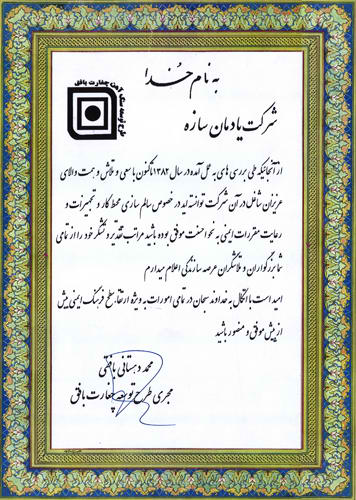 به نام خدا
شرکت یادمان سازه
طرح توسعه سنگ آهن چغارت بافق
از آنجائیکه طی بررسی های به عمل آمده در سال ۱۳۸۴ تاکنون با سعی و تلاش و همت والای
عزیزان شاغل در آن شرکت توانسته اید در خصوص سالم سازی محیط کار و تجهیزات و
رعایت مقررات ایمنی به نحو احسنت موفق بوده باشید مراتب تقدیر و تشکر خود را از تمامی
شما بزرگواران و تلاشگران عرصه سازندگی اعلام میدارم
امید است با اتکال به خداوند سبحان در تمامی امورات به ویژه ارتقاء سطح فرهنگ ایمنی بیش
از پیش موفق و منصور باشید
محمد دهستانی بافقی
مجری طرح توسعه چغارت بافق